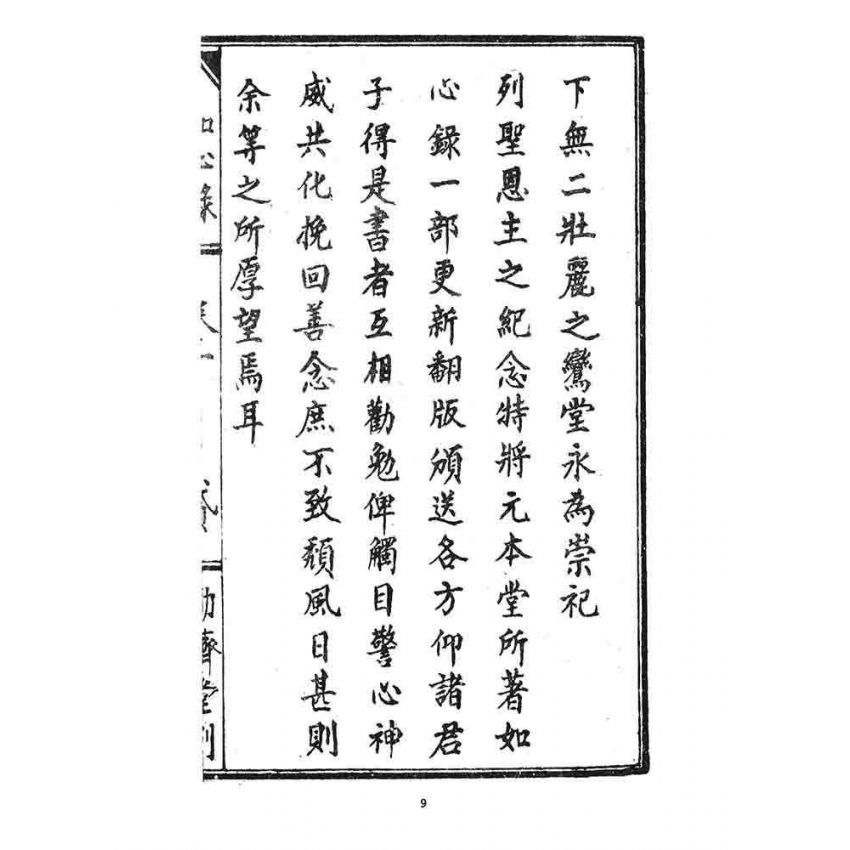 下無二壯麗之鸞堂永為崇祀
列聖恩主之紀念特將元本堂所著如
心錄一部更新翻版頒送各方仰諸君
子得是書者互相勸勉俾觸目警心神
威共化挽回善念庶不致頹風日甚則
余等之所厚望焉耳
9